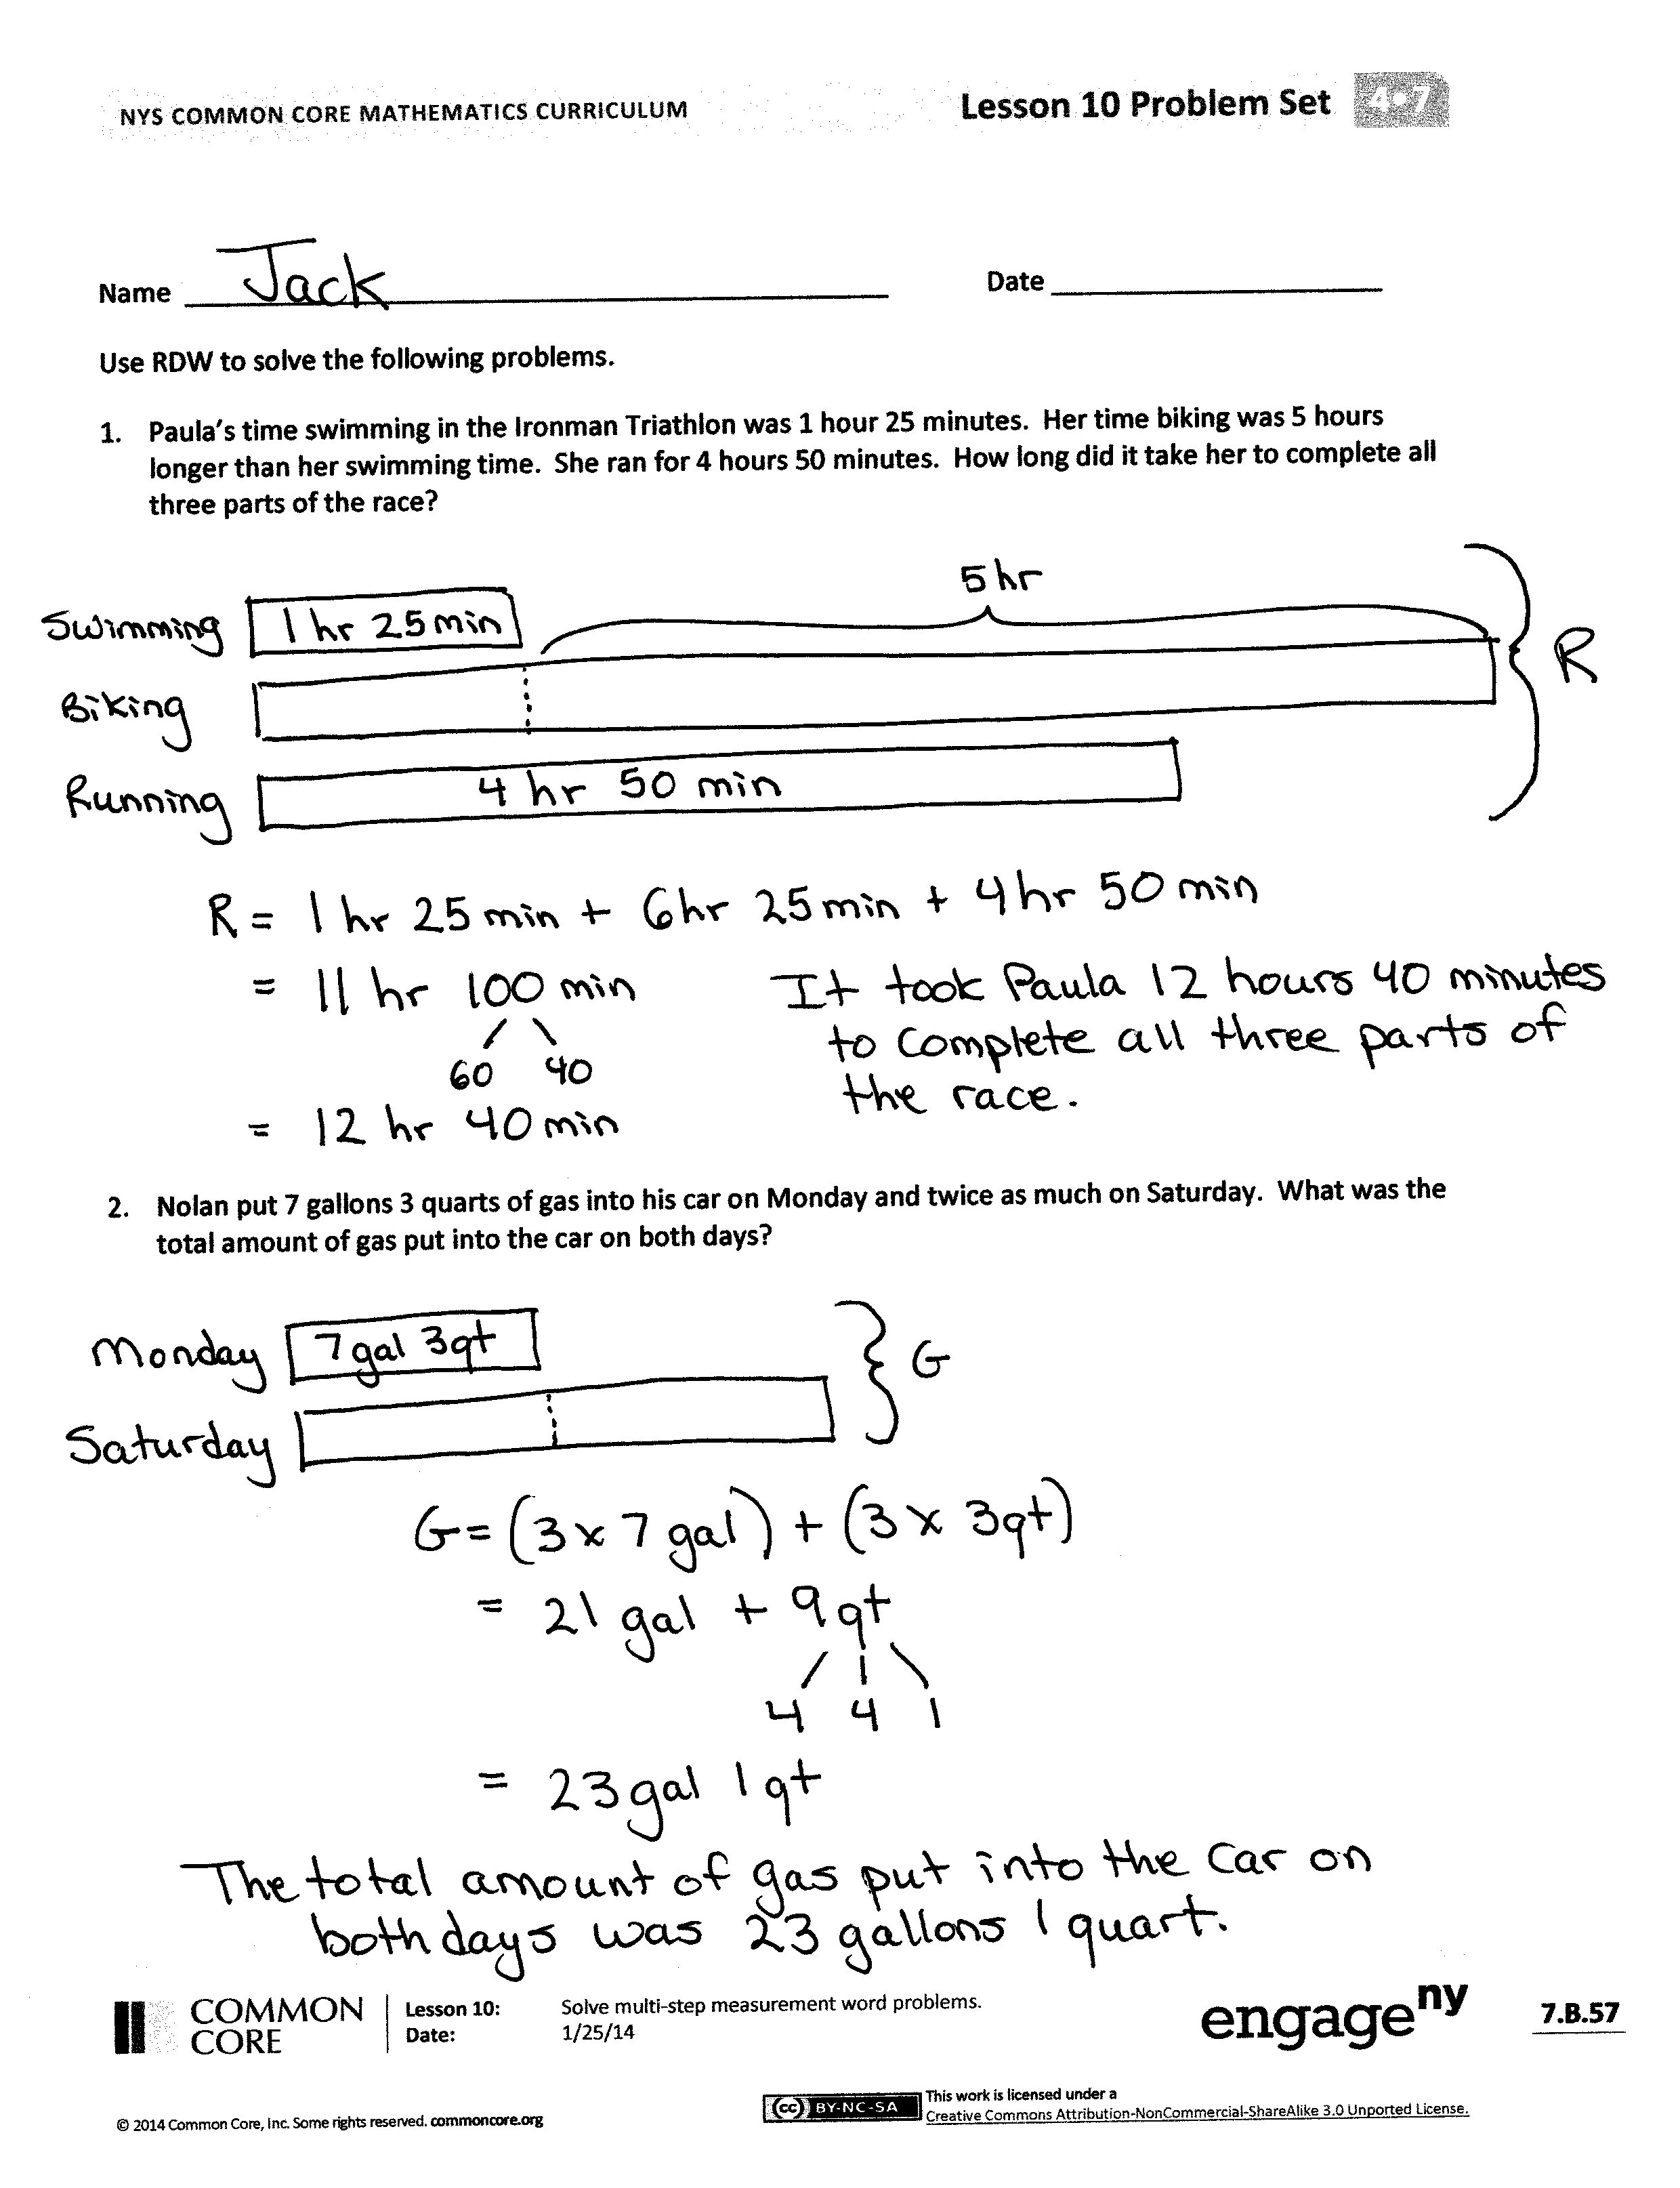 NYS COMMON CORE MATHEMATICS CURRICULUM
Lesson 10 Problem Set 4•7
Name Jack Date
Use RDW to solve the following problems.
1. Paula's time swimming in the Ironman Triathlon was 1 hour 25 minutes. Her time biking was 5 hours
longer than her swimming time. She ran for 4 hours 50 minutes. How long did it take her to complete all
three parts of the race?
5 hr
Swimming 1 hr 25 min
R
Biking
Running 4 hr 50 min
R = 1 hr 25 min + 6 hr 25 min + 4 hr 50 min
= 11 hr 100 min
60 40
= 12 hr 40 min
It took Paula 12 hours 40 minutes
to complete all three parts of
the race.
2. Nolan put 7 gallons 3 quarts of gas into his car on Monday and twice as much on Saturday. What was the
total amount of gas put into the car on both days?
Monday 7 gal 3 qt
G
Saturday
G = (3 x 7 gal) + (3 x 3 qt)
= 21 gal + 9 qt
4 4 1
= 23 gal 1 qt
The total amount of gas put into the car on
both days was 23 gallons 1 quart.
COMMON
CORE
Lesson 10: Solve multi-step measurement word problems.
Date: 1/25/14
engage ny
7.B.57
© 2014 Common Core, Inc. Some rights reserved. commoncore.org
(cc) BY-NC-SA
This work is licensed under a
Creative Commons Attribution-NonCommercial-ShareAlike 3.0 Unported License.